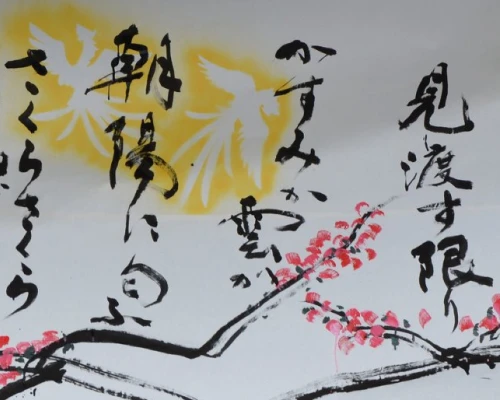 見渡す限り
かすみか
雲か
朝陽に匂ふ
さくらさくら